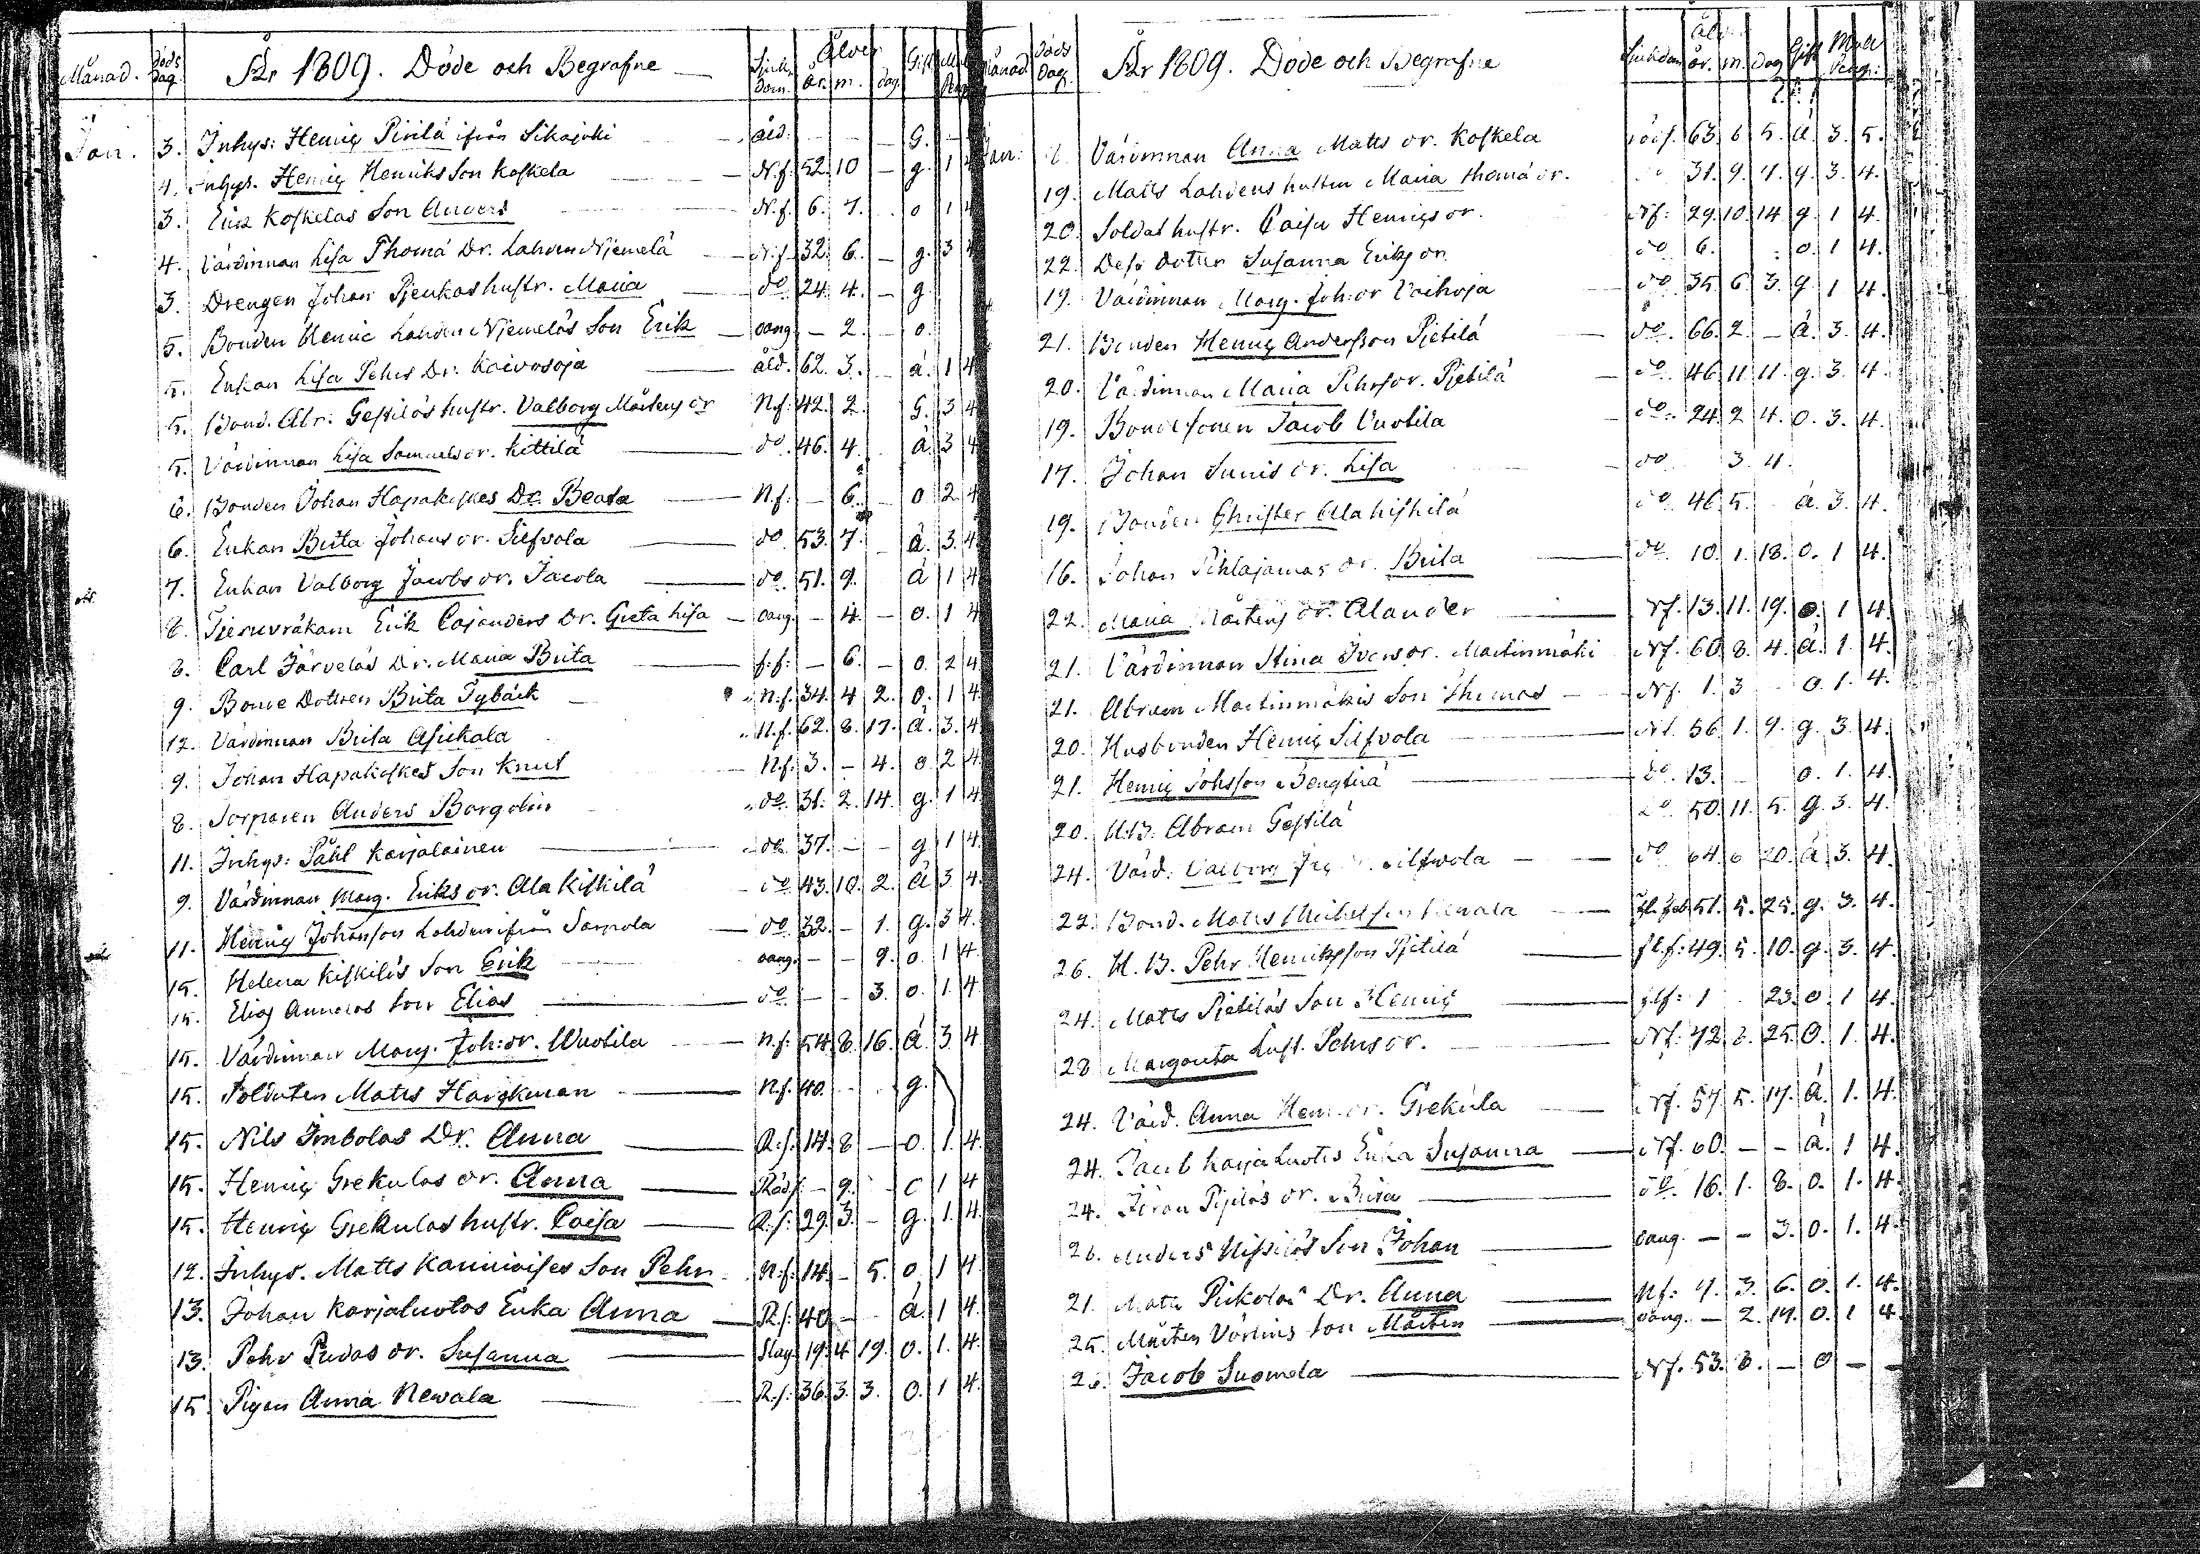 Månad. döds dag. År 1809. Döde och Begrafne Sjukdom. Ålder år. m. dag. Gift
Jan. 3. Inhys: Henric Pirilä ifrån Sikajoki åld: - - - G. -
4. Inhys. Henric Henriks Son Koskela N.f. 52. 10 - g. 1 4
3. Erik Koskelas Son Anders N.f. 6. 7. o 1 4
4. Värdinnan Lisa Thomä Dr. Lahden Njemelä N.f. 32. 6. - g. 3 4
3. Drengen Johan Pjenkas hustr. Maria do 24. 4. - g
5. Bonden Henric Lahden Njemeläs Son Erik oang. - 2. - o
5. Enkan Lisa Pehrs Dr. Kaivosoja åld. 62. 3. - ä. 1 4
5. Bond. Abr. Gestiläs hustr. Valborg Mårtens dr N.f. 42. 2. G. 3 4
5. Värdinnan Lisa Samuels dr. Kittilä do. 46. 4. ä. 3 4
6. Bonden Johan Hapakoskes Dr. Beata N.f. - 6. - o 2 4
6. Enkan Brita Johans dr. Silfvola do. 53. 7. ä. 3. 4
7. Enkan Valborg Jacobs dr. Jacola do. 51. 9. ä 1 4
8. Erik Cajanders Dr. Greta Lisa oang. - 4. - o. 1 4
8. Carl Järveläs Dr. Maria Brita f.f. - 6. - o. 2 4
9. Bonde Dottren Brita Nybäck n.f. 34. 4 2. o. 1 4
12. Värdinnan Brita Asickala N.f. 62. 8. 17. ä. 3. 4
9. Johan Hapakoskes Son Knut N.f. 3. - 4. o. 2 4
8. Torparen Anders Borgolin do. 31. 2. 14. g. 1 4
11. Inhys: Påhl Karjalainen do. 37. - - g 1 4
9. Värdinnan Marg. Eriks dr. Ala Kiskilä do. 43. 10. 2. ä 3 4.
11. Henric Johansson Lahden ifrån Sarpola do 32. - 1. g. 3 4.
15. Helena Kiskiläs Son Erik oang. - - 9. o. 1 4
15. Elias Annolas Son Elias do. - - 3. o. 1. 4
15. Värdinnan Marg. Joh: dr. Wuotila N.f. 54. 8. 16. ä. 3 4
15. Soldaten Matts Hangkman N.f. 40. g.
15. Nils Imbolas Dr. Anna R.f. 14. 8 - o. 1. 4.
15. Henric Grekulas dr. Anna Röds. - 9. o 1 4
15. Henric Grekulas hustr. Caisa R.f. 29. 3. - g. 1. 4.
12. Inhys. Matts Kanniaises Son Pehr N.f. 14. - 5. o. 1 4
13. Johan Karjaluotos Enka Anna R.f. 40. - ä. 1 4.
13. Pehr Pudas dr. Susanna Slag. 19. 4. 19. o. 1. 4.
15. Pigan Anna Newala R.f. 36. 3. 3. o. 1 4.
Månad Döds Dag. År 1809. Döde och Begrafne Sjukdom Åld. år. m. dag Gift Mull Peng:
Jan: Värdinnan Anna Matts dr. Koskela röds. 63. 6 5. ä. 3. 5.
19. Matts Lahdens hustru Maria Thomä dr. 31. 9. 4. g. 3. 4.
20. Soldat hustr. Caisa Henrics dr. Nf: 29. 10. 14 g. 1 4.
22. Dess dotter Susanna Eriks dr. do 6. o. 1 4.
19. Värdinnan Marg. Joh: dr Vaihoja do 35 6 3. g 1 4.
21. Bonden Henric Andersson Pjetilä do. 66. 2. - ä. 3. 4.
20. Värdinnan Maria Pehrs dr. Pjetilä do. 46 11. 11. g. 3. 4.
19. Bonde Sonen Jacob Vuotila do. 24. 2 4. o. 3. 4.
17. Johan Sunis dr. Lisa do 3. 4.
19. Bonden Christer Alakiskilä do. 46. 5. ä. 3. 4.
16. Johan Pihlajamas dr. Brita do. 10. 1. 18. o. 1 4.
22. Maria Mårtens dr. Alander Nf. 13. 11. 19. o. 1 4.
21. Värdinnan Stina Ivers dr. Martinmäki Nf. 60. 8. 4. ä. 1. 4.
21. Abram Martinmäkis Son Thomas Nf. 1. 3 o. 1. 4.
20. Husbonden Henric Silfvola Nf. 56. 1. 9. g. 3. 4.
21. Henric Johsson Bengtilä do. 13. o. 1. 4.
20. H.B. Abram Gestilä do. 50. 11. 5. g. 3. 4.
24. Värd: Valborg Silfwola do 64. 6 20. ä 3. 4.
22. Bond. Matts Michelsson 51. 5. 25. g. 3. 4.
26. H.B. Pehr Henriksson Pjetilä fl.f: 49. 5. 10. g. 3. 4.
24. Matts Pjetiläs Son Henric flf: 1 23. o. 1 4.
28 Margareta hust. Pehrs dr. Nf. 42 8. 25. o. 1. 4.
24. Värd. Anna Henr dr. Grekula Nf. 57. 5. 17. ä. 1. 4.
24. Jacob Karjaluotos Enka Susanna Nf. 60. - - ä. 1 4.
24. Jöran Pipiläs dr. Brita do. 16. 1. 8. o. 1. 4.
26. Anders Nissiläs Son Johan oang. - - 3. o. 1. 4.
21. Matts Pirkolas Dr. Anna Nf: 4. 3. 6. o. 1. 4.
25. Mårten Vörlins Son Mårten oang. - 2. 19. o. 1 4
26. Jacob Suomela Nf. 53. 8. - o - -